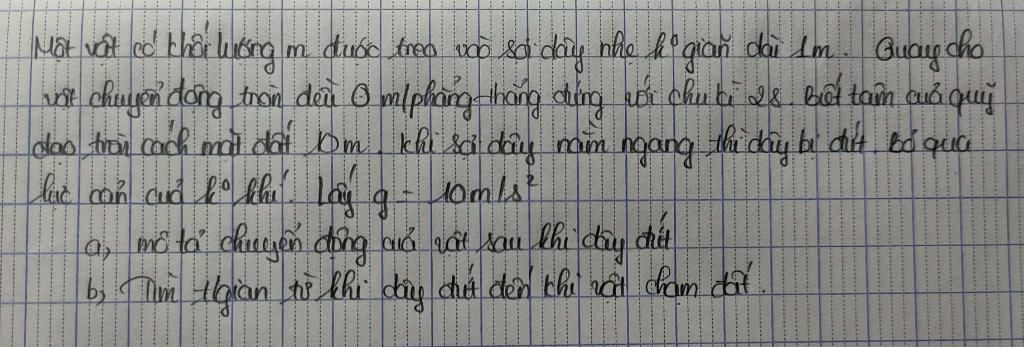 Một vật có khối lượng m được treo vào sợi dây nhẹ k° giãn dài 1m. Quay cho
vật chuyển động tròn đều ở m/phẳng thẳng đứng với chu kì 2s. Biết tâm của quỹ
đạo tròn cách mặt đất 10m. khi sợi dây nằm ngang thì dây bị đứt. bỏ qua
lực cản của k° khí. Lấy g = 10m/s²
a, mô tả chuyển động của vật sau khi dây đứt
b, Tìm tgian từ khi dây đứt đến khi vật chạm đất.